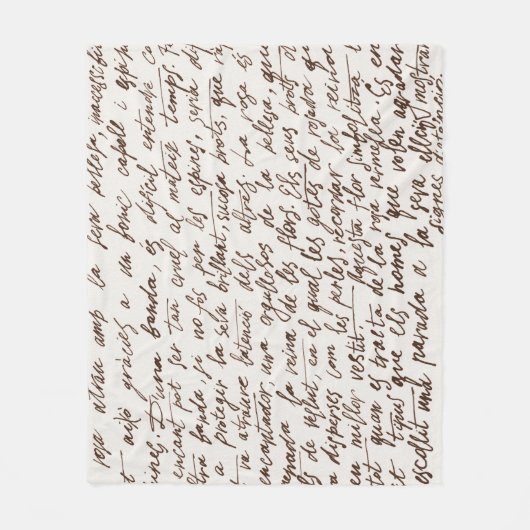 rosa atrau amb la seva bellesa, inaccessib
t això gràcies a un fonic capoll i espin
ining. D'una banda, és difícil entendre co
encant pot ser tan cruel al mateix temp?
ltra banda, si no fos per les espines, seria di
a protegir la seva brillant, suaus brots, que
va atraure l'atenció dels altres. La rosa és
encantador, una orgullosa de la bellesa, q
menada la reina de les flors. Els seus brots d
s de vellut, en el qual les gotes de rosada qu
a disperses com les perles, recorda la reina
en millor vestit. Aquesta flor simbolitza
tit quan es tracta de la rosa vermella. És en
t tipus que els homes que volen agradar
escollit umà parada a la seva elling mistran
signes